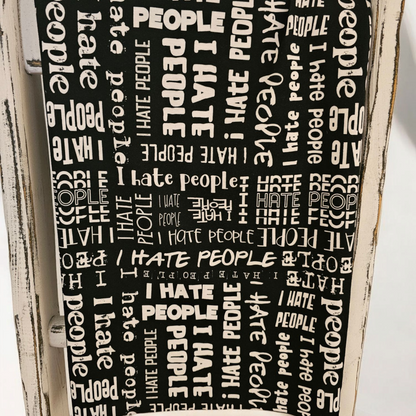 I hate people
I hate people
I HATE PEOPLE
I HATE PEOPLE
I HATE PEOPLE
I HATE PEOPLE
I hate people
I HATE PEOPLE
I hate people
I hate people
I HATE PEOPLE
I HATE PEOPLE
I hate people
I HATE PEOPLE
I HATE PEOPLE
I HATE PEOPLE
I HATE PEOPLE
I HATE PEOPLE
I HATE PEOPLE
I HATE PEOPLE
I HATE PEOPLE
I HATE
PEOPLE
I HATE
PEOPLE
I HATE PEOPLE
I HATE PEOPLE
I HATE
PEOPLE
I hate people
people
I hate people
people